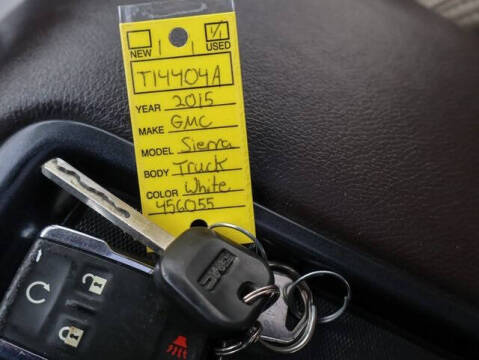 NEW USED
T14404A
YEAR 2015
MAKE GMC
MODEL Sierra
BODY Truck
COLOR White
456055
GMC